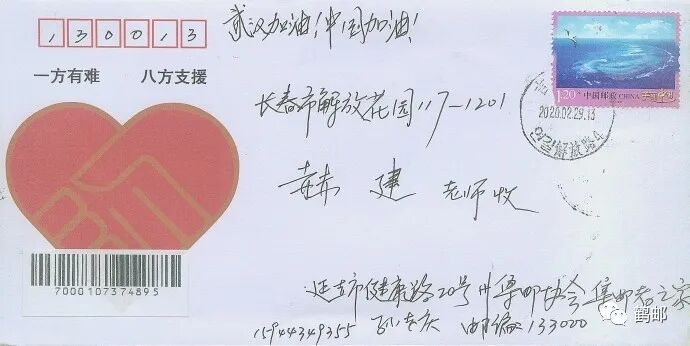 130013
武汉加油!中国加油!
一方有难 八方支援
1.20元 中国邮政 CHINA
2020.02.29.13
解放路4
长春市解放花园117-1201
赫 建 老师收
7000107374895
延吉市健康路20号州集邮协会集邮者之家
15944349355 孙志庆 邮编133000
鹤邮